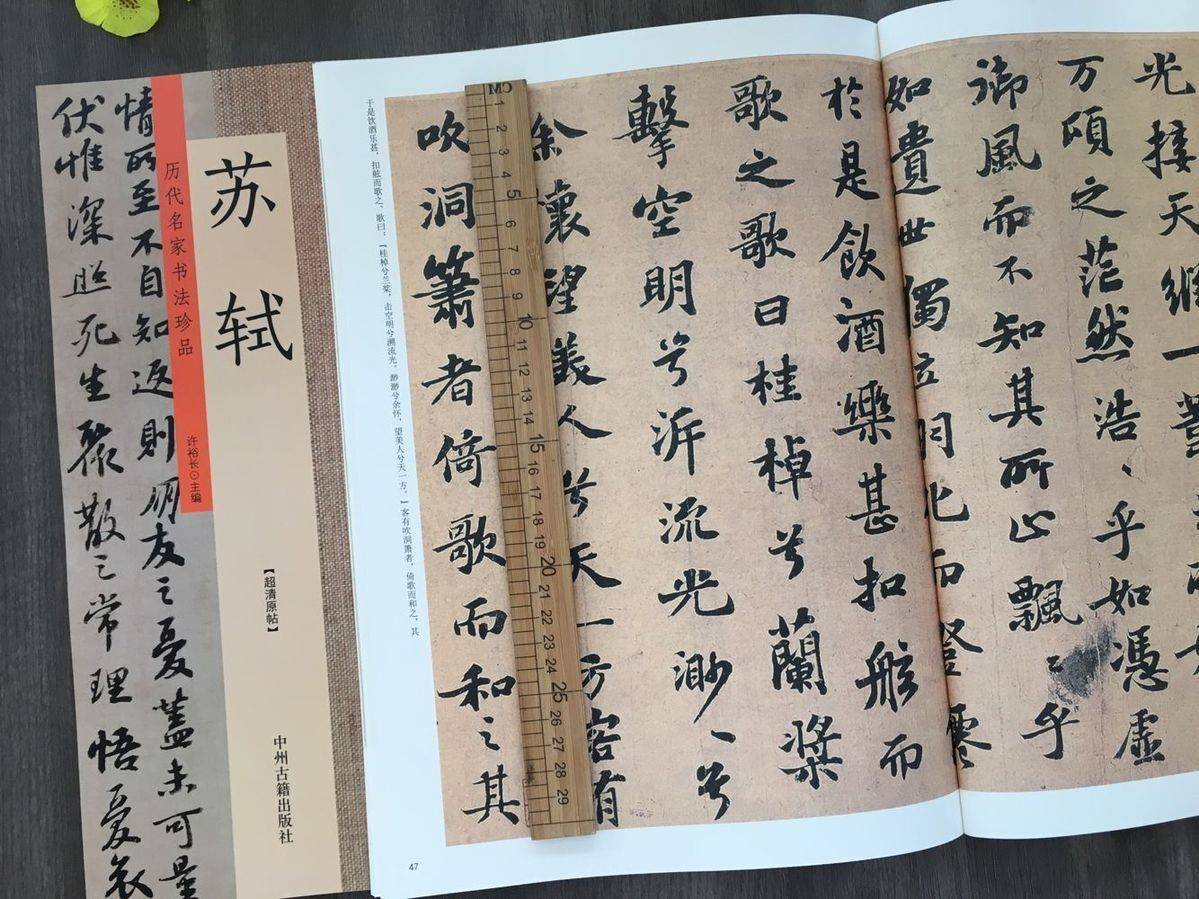 苏轼
历代名家书法珍品
许裕长⊙主编
【超清原帖】
中州古籍出版社
情所至不自知返則朋友之憂蓋未可量
伏惟深照死生聚散之常理悟憂哀
光接天縱一葦
万頃之茫然浩〻乎如憑虛
御風而不知其所止飄〻乎
如遺世獨立羽化而登
於是飲酒樂甚扣舷而
歌之歌曰桂棹兮蘭槳
擊空明兮泝流光渺〻兮
余懷望美人兮天一方客有
吹洞簫者倚歌而和之其
于是饮酒乐甚，扣舷而歌之。歌曰：『桂棹兮兰桨，击空明兮溯流光，渺渺兮余怀，望美人兮天一方。』客有吹洞萧者，倚歌而和之，其
47
CM 1 2 3 4 5 6 7 8 9 10 11 12 13 14 15 16 17 18 19 20 21 22 23 24 25 26 27 28 29